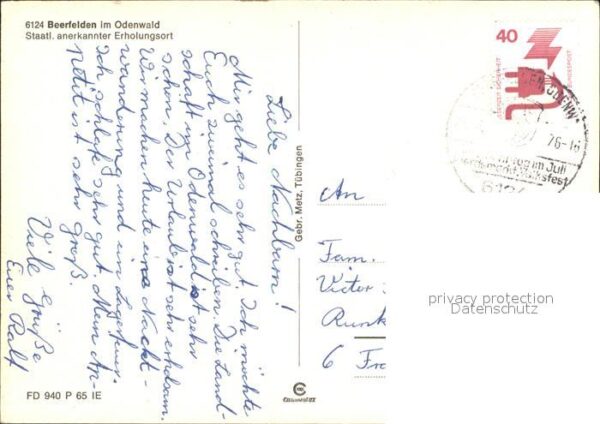 6124 Beerfelden im Odenwald
Staatl. anerkannter Erholungsort
Liebe Nachbarn!
Mir geht es sehr gut. Ich möchte
Euch zweimal schreiben. Die Land-
schaft im Odenwald ist sehr
schön. Der Urlaub ist sehr erholsam.
Wir machen heute eine Nacht-
wanderung und ein Lagerfeuer.
Ich schlafe sehr gut. Mein Ap-
petit ist sehr groß.
Viele Grüße
Euer Ralf
FD 940 P 65 IE
Gebr. Metz, Tübingen
40
DEUTSCHE BUNDESPOST
ODENW
76-16
im Juli
6124
An
Fam.
Victor
Runk
6 Fra
privacy protection
Datenschutz